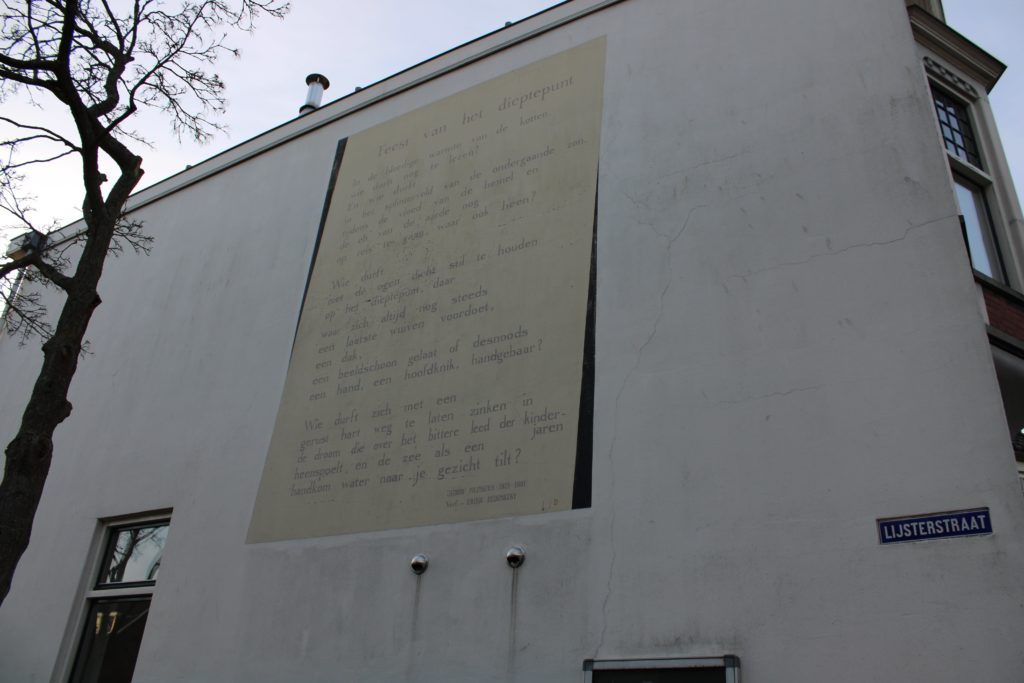 Feest van het dieptepunt
In de bloedige warmte van de ketten
wie durft nog te leven?
En wie durft
in het splinterveld van de ondergaande zon,
tijdens de vloed van de hemel en
de eb van de aarde nog
op reis te gaan, waar ook heen?
Wie durft
met de ogen dicht stil te houden
op het dieptepunt, daar
waar zich altijd nog steeds
een laatste wuiven voordoet,
een dak,
een beeldschoon gelaat of desnoods
een hand, een hoofdknik, handgebaar?
Wie durft zich met een
gerust hart weg te laten zinken in
de droom die over het bittere leed der kinder-
jaren
heenspoelt, en de zee als een
handkom water naar je gezicht tilt?
LIJSTERSTRAAT